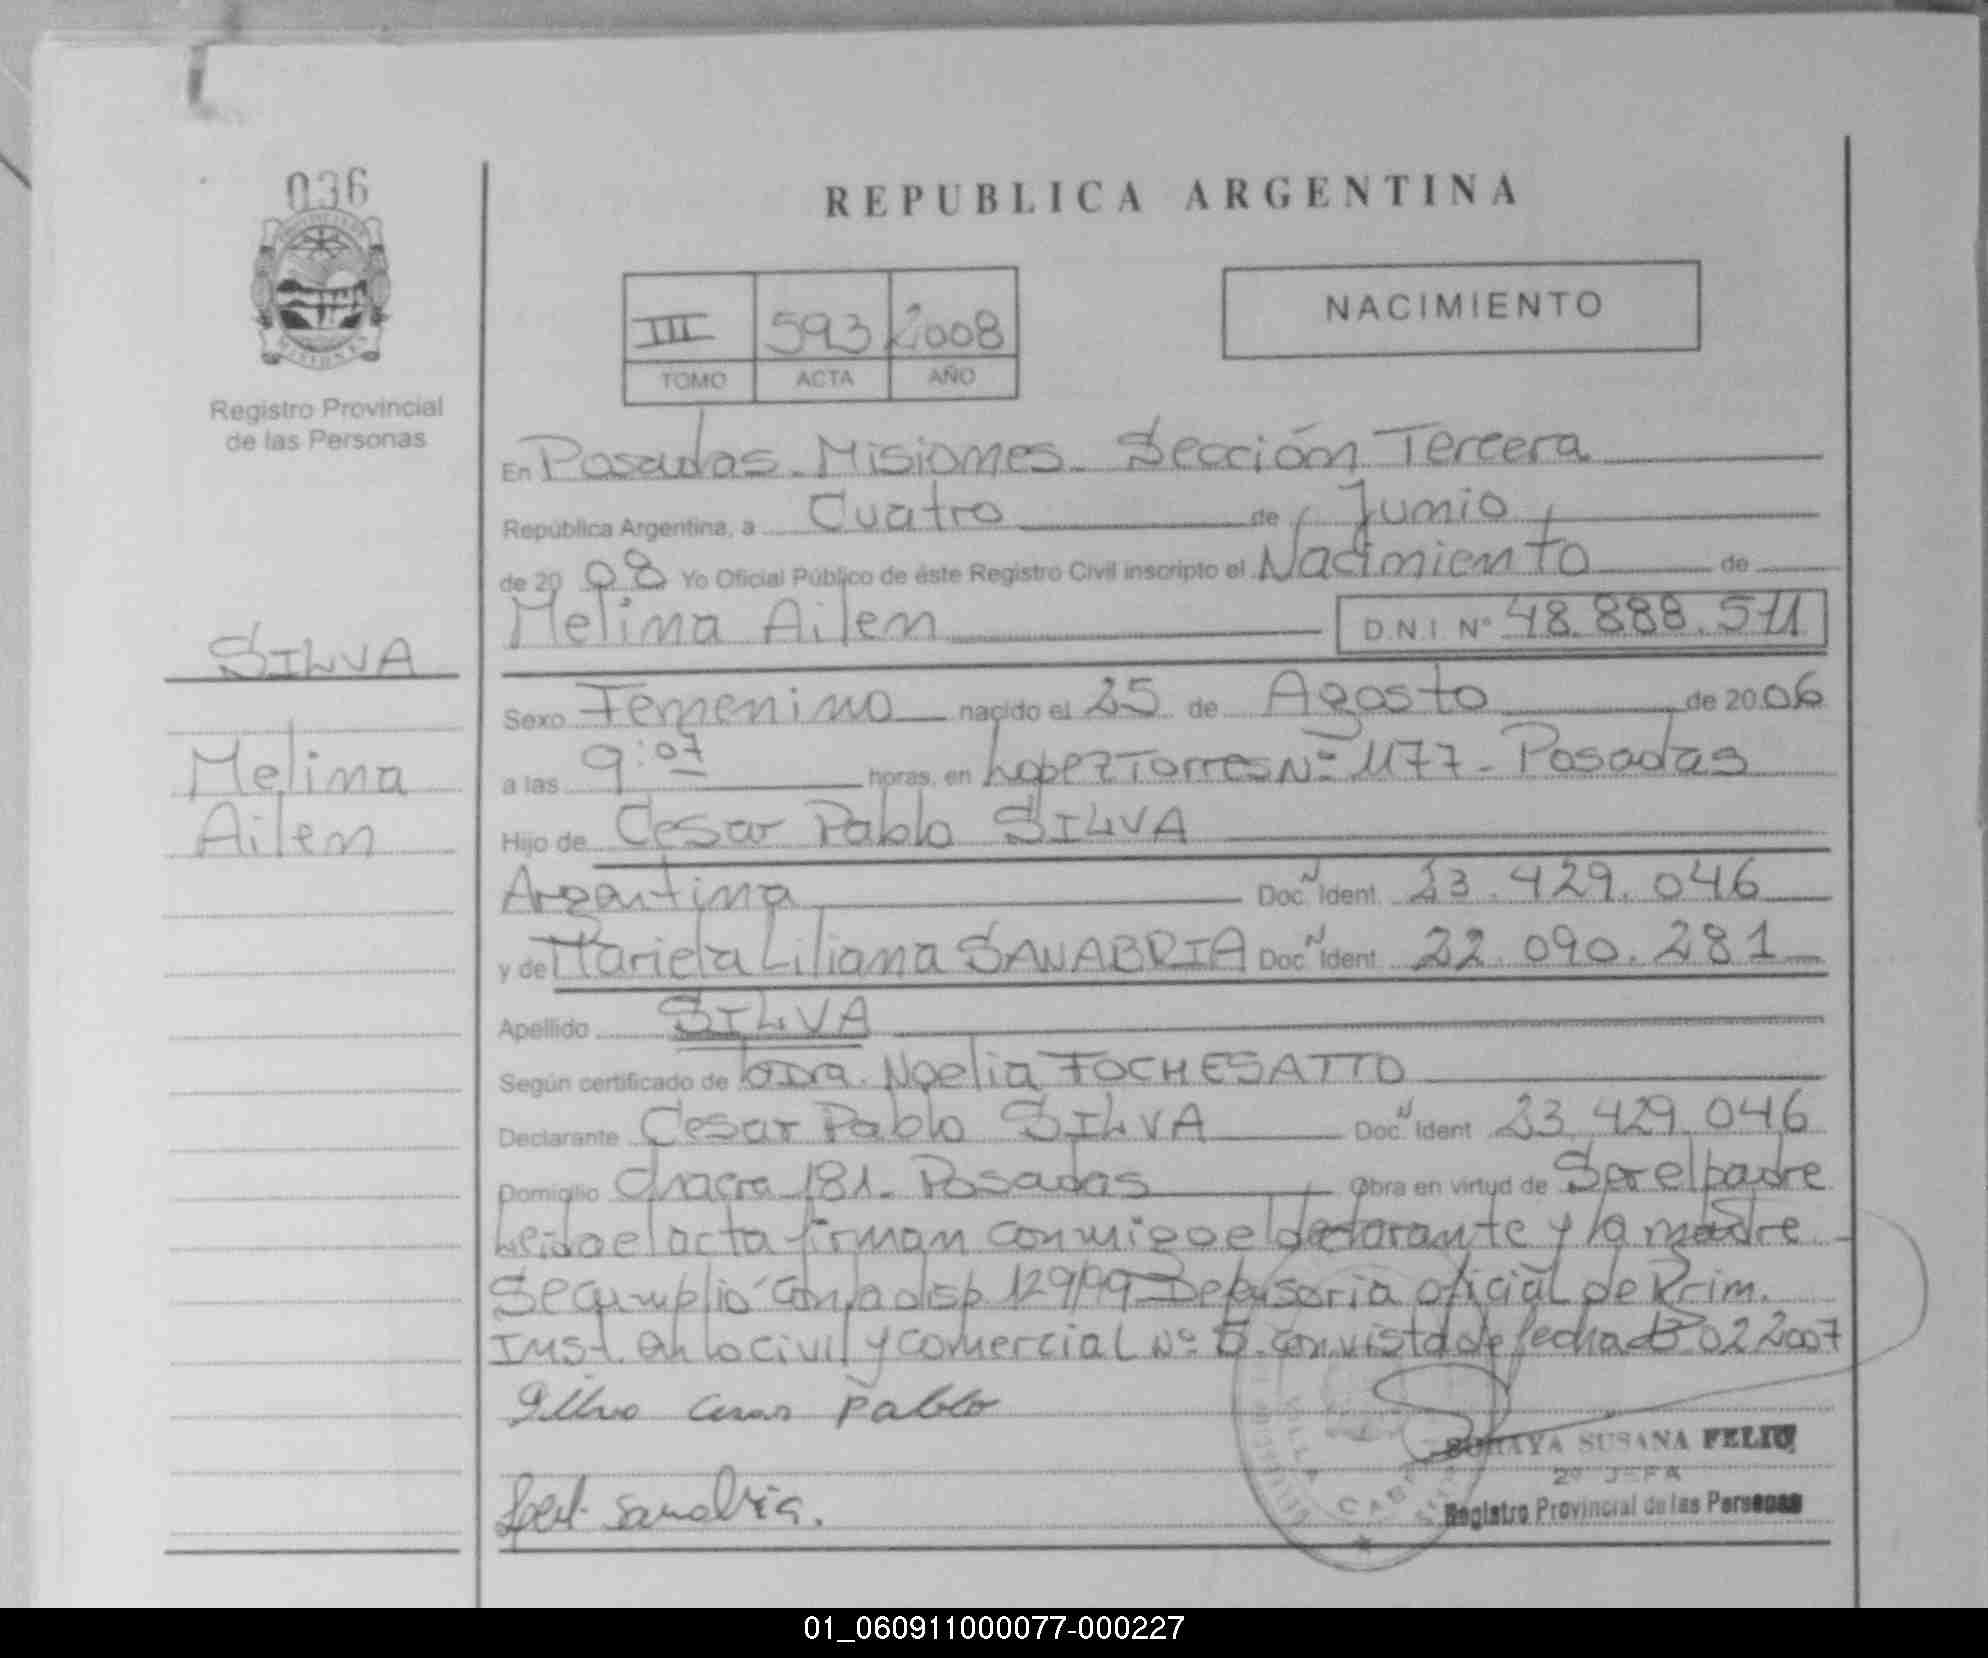 036
REPUBLICA ARGENTINA
MISIONES
Registro Provincial
de las Personas
III 593 2008
TOMO ACTA AÑO
NACIMIENTO
En Posadas - Misiones - Sección Tercera
República Argentina, a Cuatro de Junio
de 2008 Yo Oficial Público de éste Registro Civil inscripto el Nacimiento de
Melina Ailen D.N.I. Nº 48.888.511
SILVA
Melina
Ailen
Sexo Femenino nacido el 25 de Agosto de 2006
a las 9:07 horas, en Lopez Torres Nº 1177 - Posadas
Hijo de Cesar Pablo SILVA
Argentina Doc. N Ident. 23.429.046
y de Mariela Liliana SANABRIA Doc. N Ident. 22.090.281
Apellido SILVA
Según certificado de Dra. Noelia FOCHESATTO
Declarante Cesar Pablo SILVA Doc. N Ident 23.429.046
Domicilio Chacra 181 - Posadas Obra en virtud de Ser el padre
Leida el acta firman conmigo el declarante y la madre -
Se cumplió con la disp. 129/99 Defensoria oficial de Prim.
Inst. en lo civil y comercial Nº 5. con vista de fecha 02 2007
Silva Cesar Pablo
Sanabria.
SUSANA FELIU
2º JEFA
Registro Provincial de las Personas
01_060911000077-000227